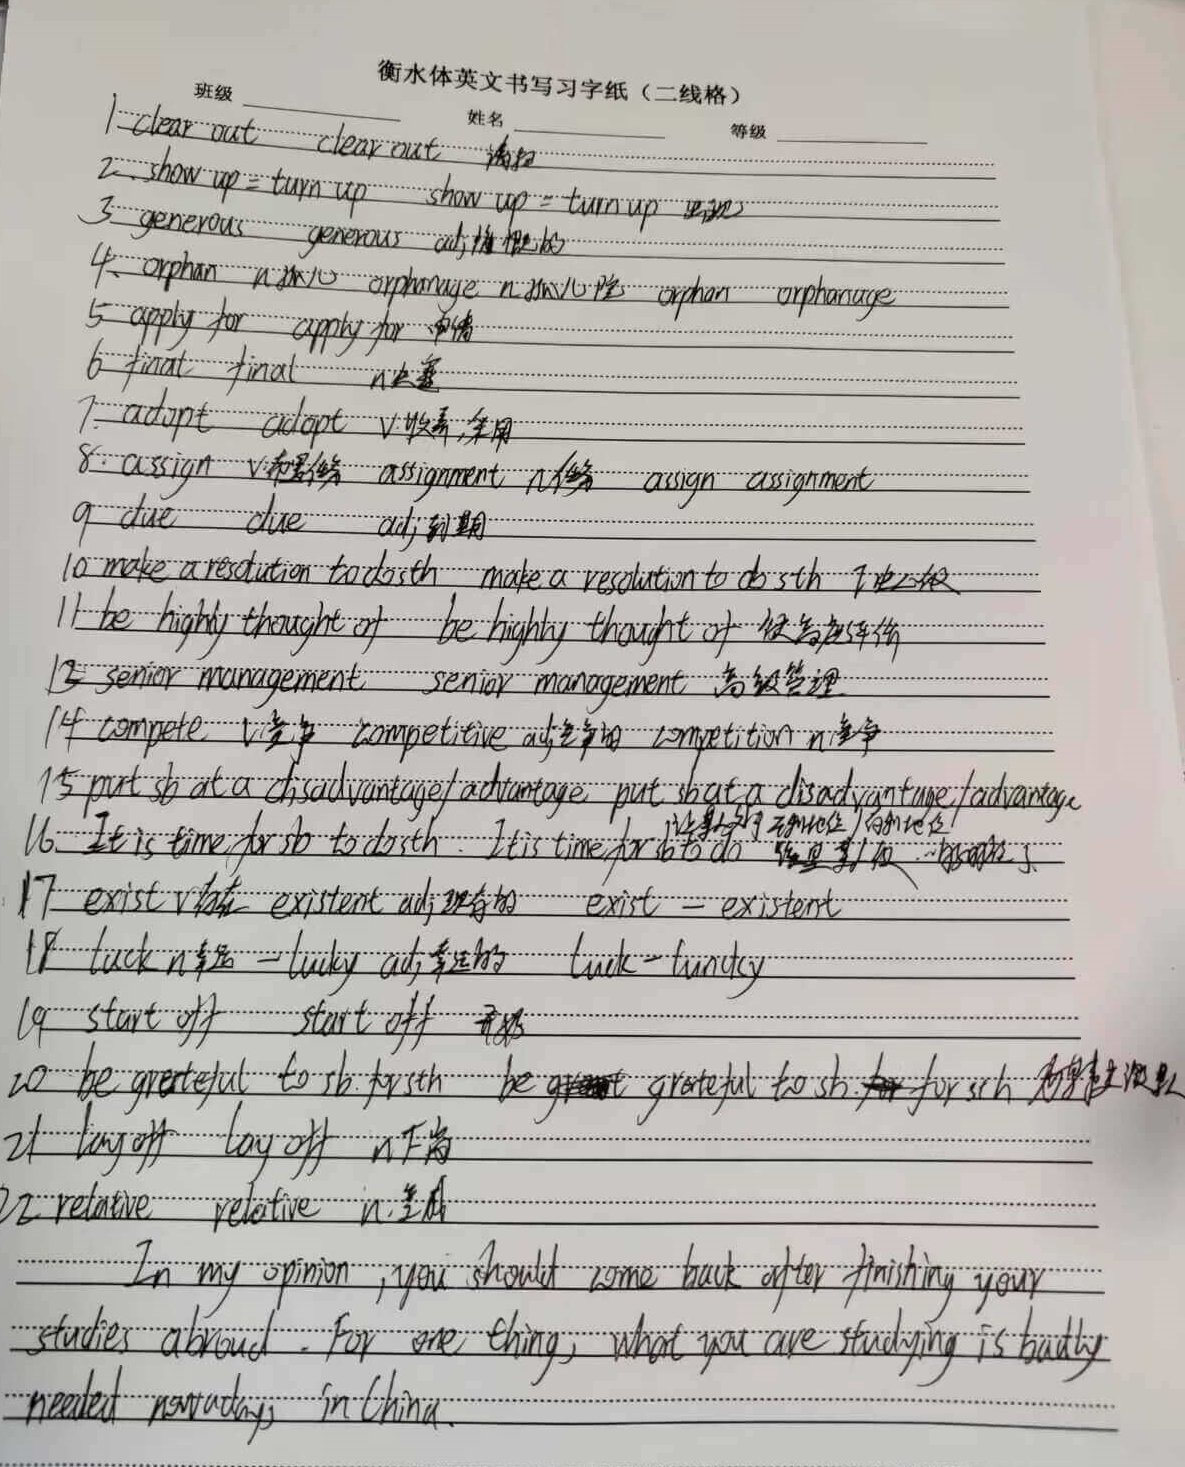 衡水体英文书写习字纸（二线格）
班级 姓名 等级
1 clear out clear out 清扫
2. show up = turn up show up = turn up 出现
3 generous generous adj 慷慨的
4. orphan n 孤儿 orphanage n 孤儿院 orphan orphanage
5 apply for apply for 申请
6 final final n 决赛
7. adopt adopt v 收养,采用
8. assign v. 布置任务 assignment n 任务 assign assignment
9 due due adj 到期
10 make a resolution to do sth make a resolution to do sth 下决心做
11 be highly thought of be highly thought of 被高度评价
13 senior management senior management 高级管理
14 compete v 竞争 competitive adj 竞争的 competition n 竞争
15 put sb at a disadvantage/advantage put sb at a disadvantage/advantage
让某人处于不利地位/有利地位
16. It is time for sb to do sth. It is time for sb to do
17 exist v 存在 existent adj 现存的 exist — existent
18 luck n 幸运 — lucky adj 幸运的 luck — luncky
19 start off start off 开始
20 be greteful to sb. for sth be grateful to sb. for sth
21 lay off lay off n 下岗
22 relative relative n. 亲戚
In my opinion, you should come back after finishing your
studies abroad. For one thing, what you are studying is badly
needed nowadays in China.